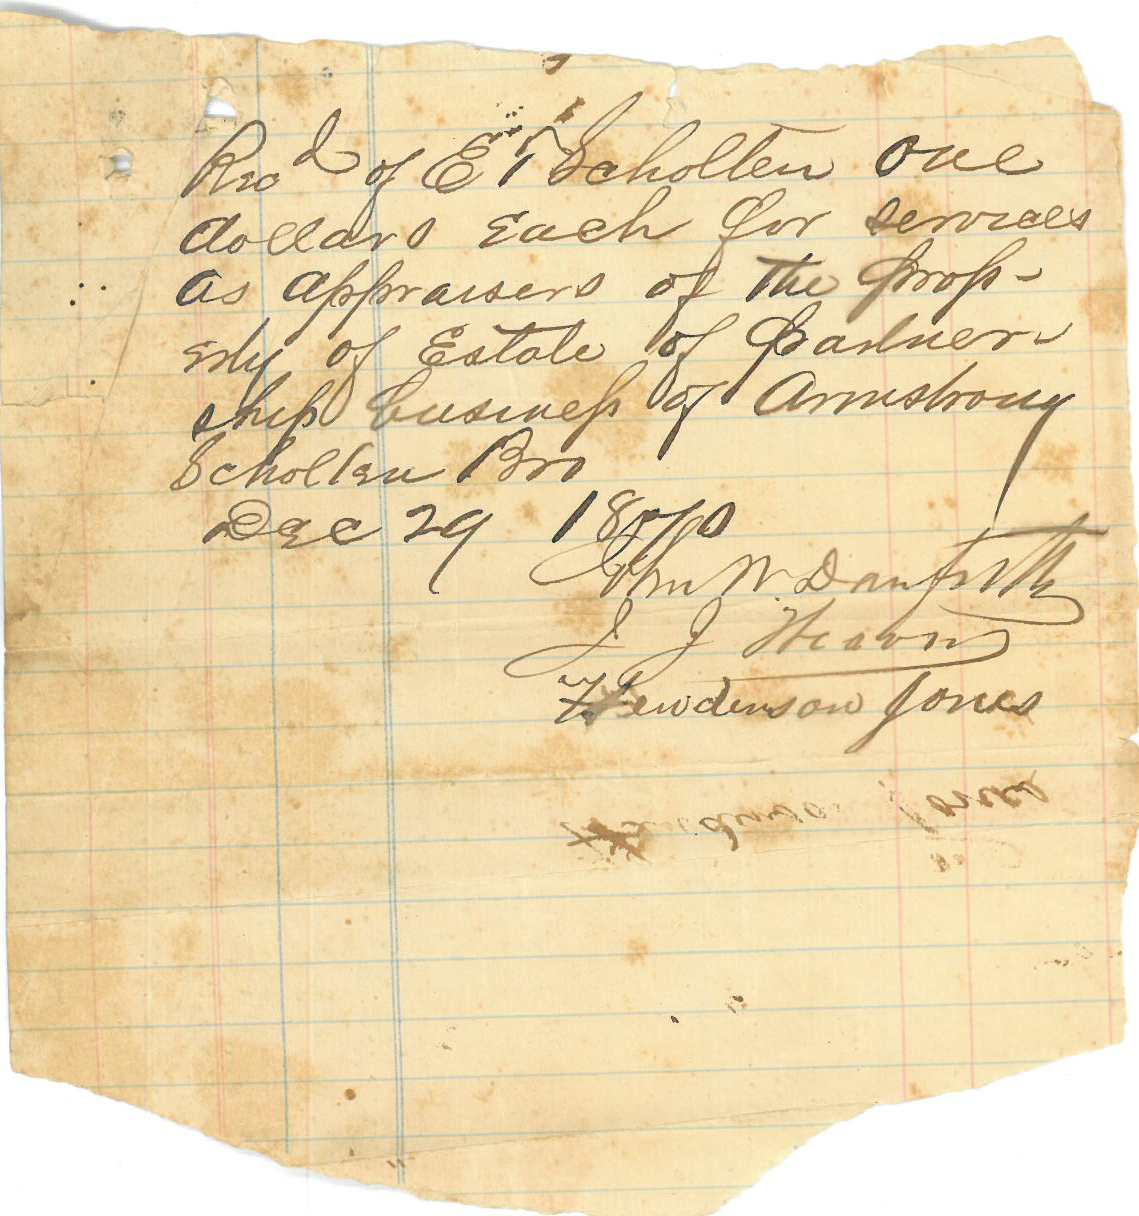 Recd of E T Scholten one
dollars each for services
as appraisers of the prop-
erty of Estate of partner-
ship business of Armstrong
Scholten Bro
Dec 29 1870
John W. Danforth
J J
Henderson Jones